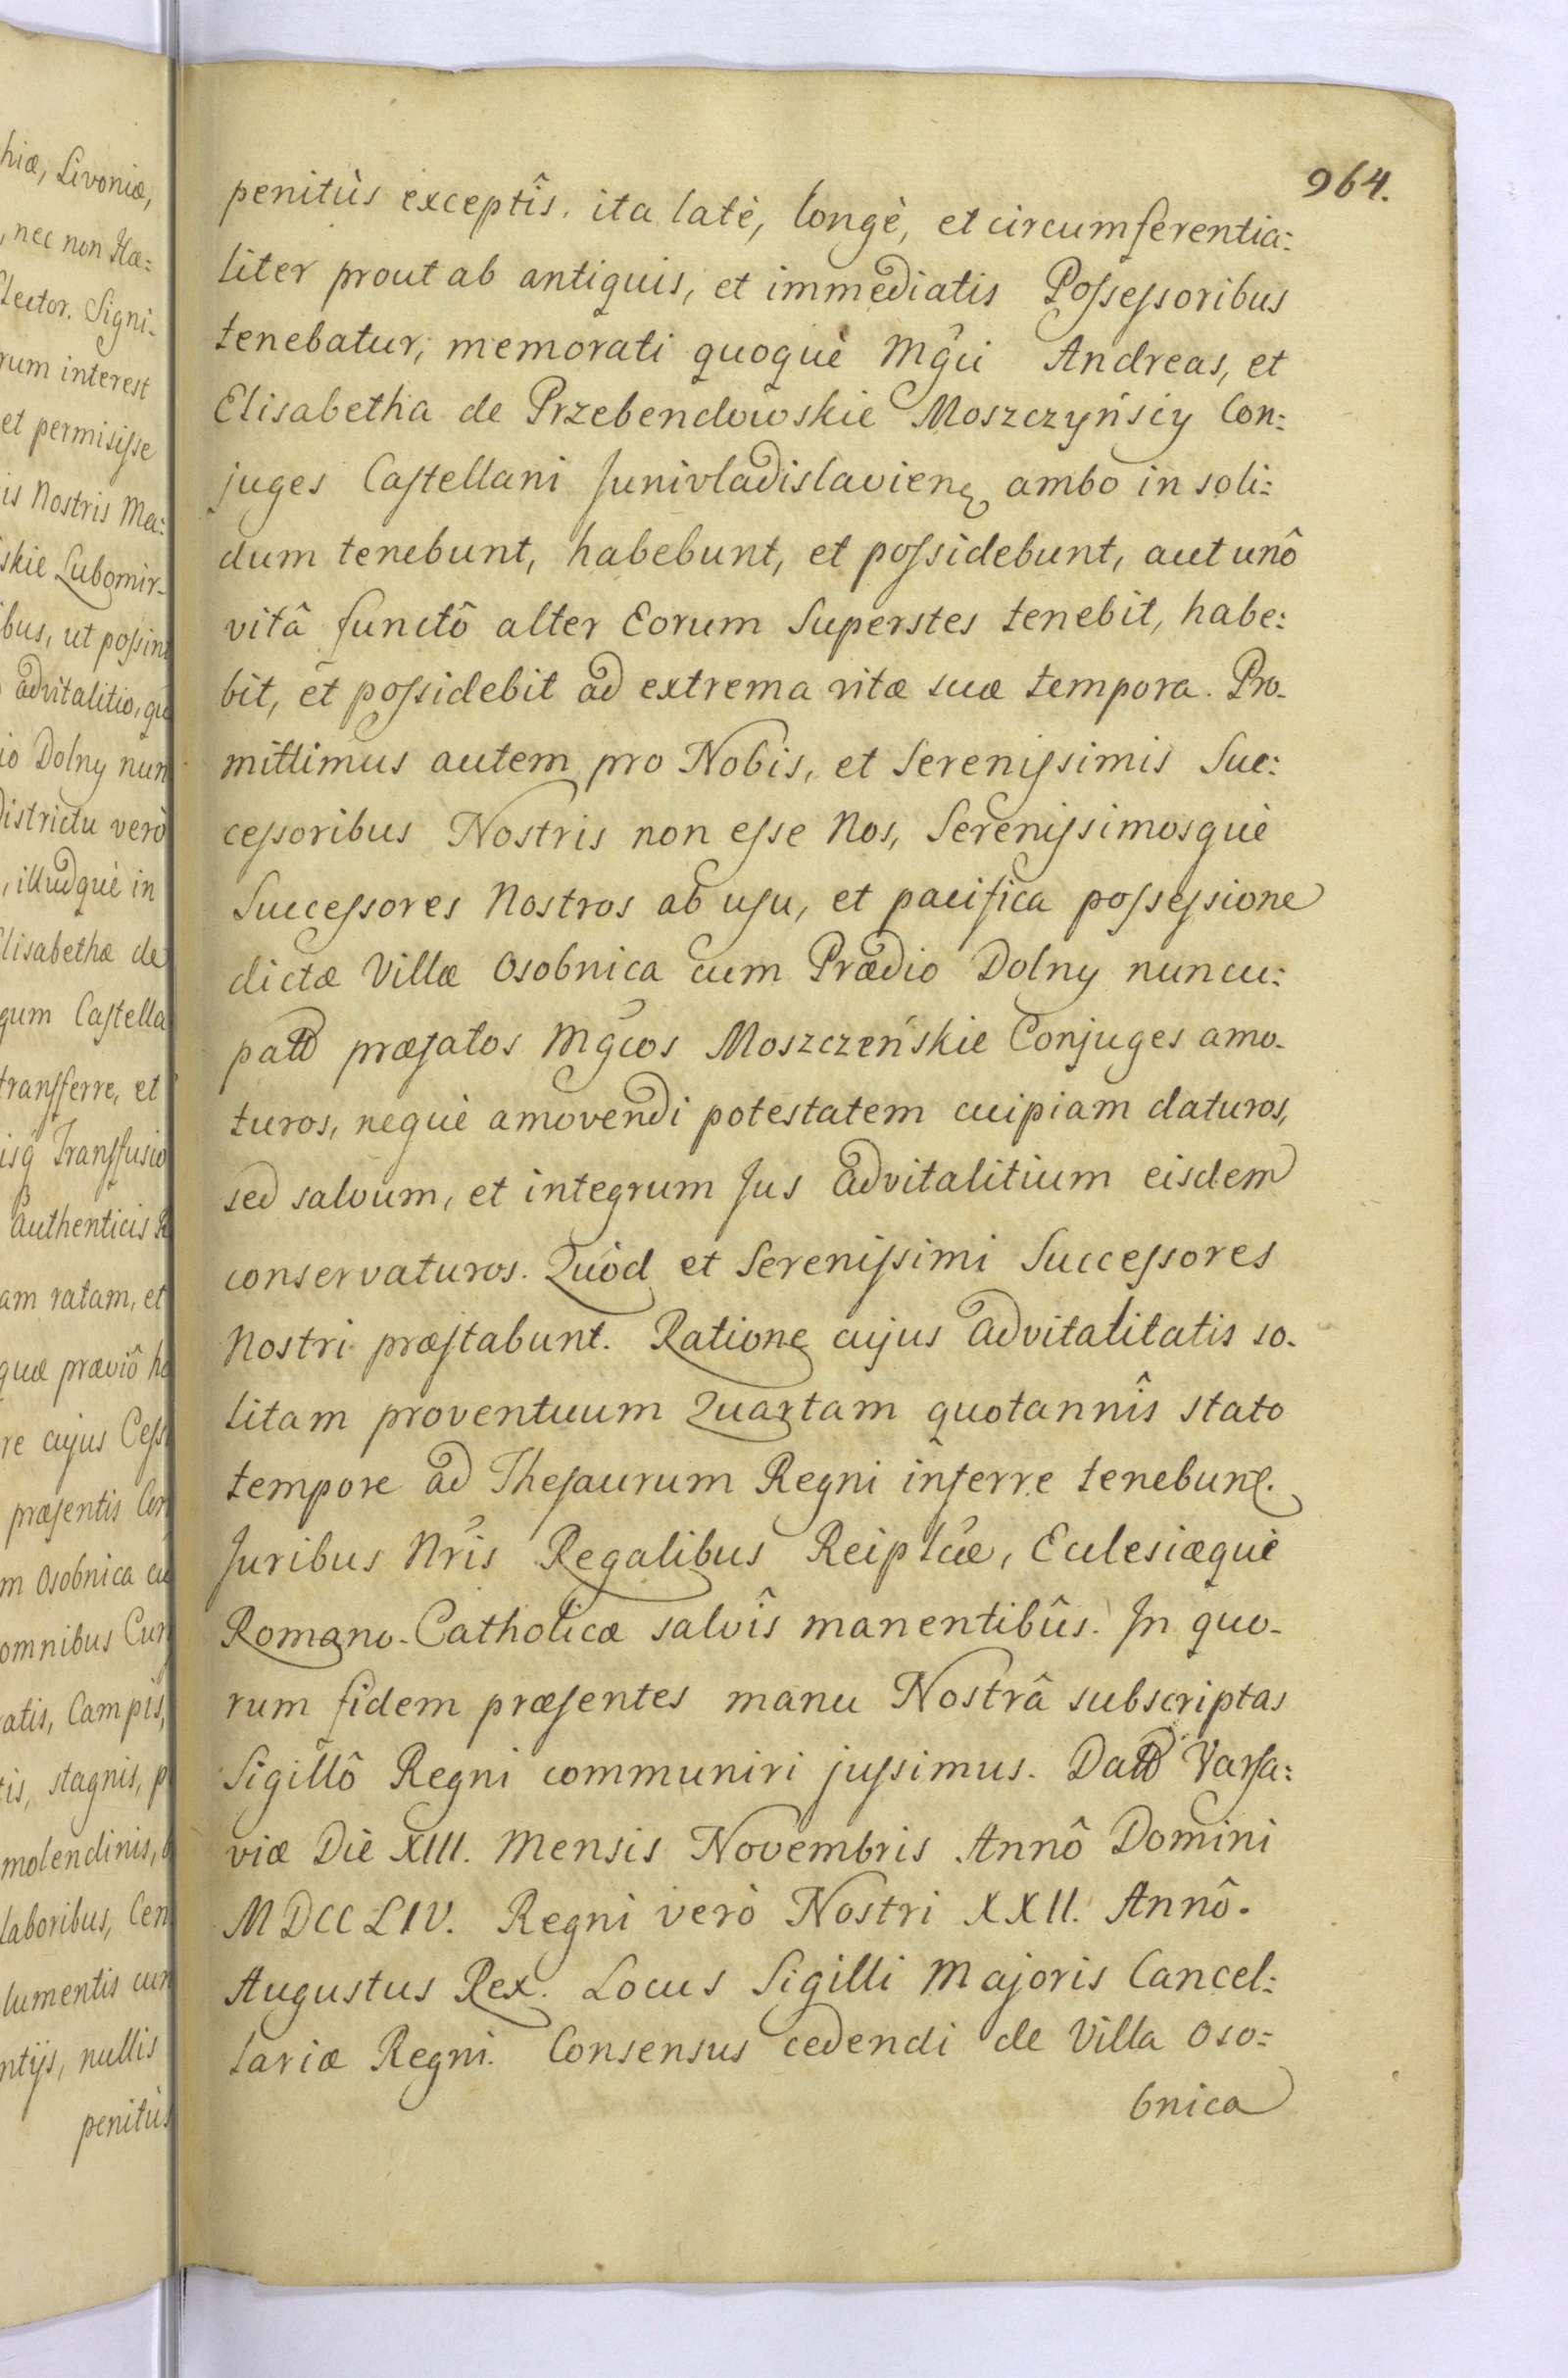 964.
penitùs exceptîs. ita latè, longè, et circumferentia:
liter prout ab antiquis, et immediatis Possessoribus
tenebatur, memorati quoquè Mgci Andreas, et
Elisabetha de Przebendowskie Moszczyńscy Con:
juges Castellani Junivladislavien ambo in soli:
dum tenebunt, habebunt, et possidebunt, aut unô
vitâ functô alter Eorum Superstes tenebit, habe:
bit, et possidebit ad extrema vitæ suæ tempora. Pro-
mittimus autem pro Nobis, et Serenissimis Suc:
cessoribus Nostris non esse Nos, Serenissimosquè
Successores Nostros ab usu, et pacifica possessione
dictæ Villæ Osobnica cum Prædio Dolny nuncu:
patō præfatos Mgcos Moszczeńskie Conjuges amo-
turos, nequè amovendi potestatem cuipiam daturos,
sed salvum, et integrum Jus advitalitium eisdem
conservaturos. Quòd et Serenissimi Successores
Nostri præstabunt. Ratione cujus advitalitatis so-
litam proventuum Quartam quotannîs stato
tempore ad Thesaurum Regni inferre tenebunt.
Juribus Nris Regalibus Reiplcæ, Eclesiæquè
Romano-Catholicæ salvîs manentibûs. In quo-
rum fidem præsentes manu Nostrâ subscriptas
Sigillô Regni communiri jussimus. Datt Varsa:
viæ Diè XIII. Mensis Novembris Annô Domini
MDCCLIV. Regni verò Nostri XXII. Annô.
Augustus Rex. Locus Sigilli Majoris Cancel:
lariæ Regni. Consensus cedendi de Villa Oso:
bnica
hiæ, Livoniæ,
, nec non Hæ:
lector. Signi-
rum interest
et permisisse
is Nostris Ma:
skie Lubomir-
bus, ut possint
advitalitio, qu
io Dolny nun
Districtu verò
, illudquè in
lisabethæ de
gum Castella
transferre, et
isq Transfusio
authenticis
am ratam, et
quæ præviô
re cujus Cess
præsentis Con
m Osobnica cu
omnibus Cur
atis, Campis,
is, stagnis, p
molendinis,
laboribus, Cen
lumentis cum
ntijs, nullis
penitùs